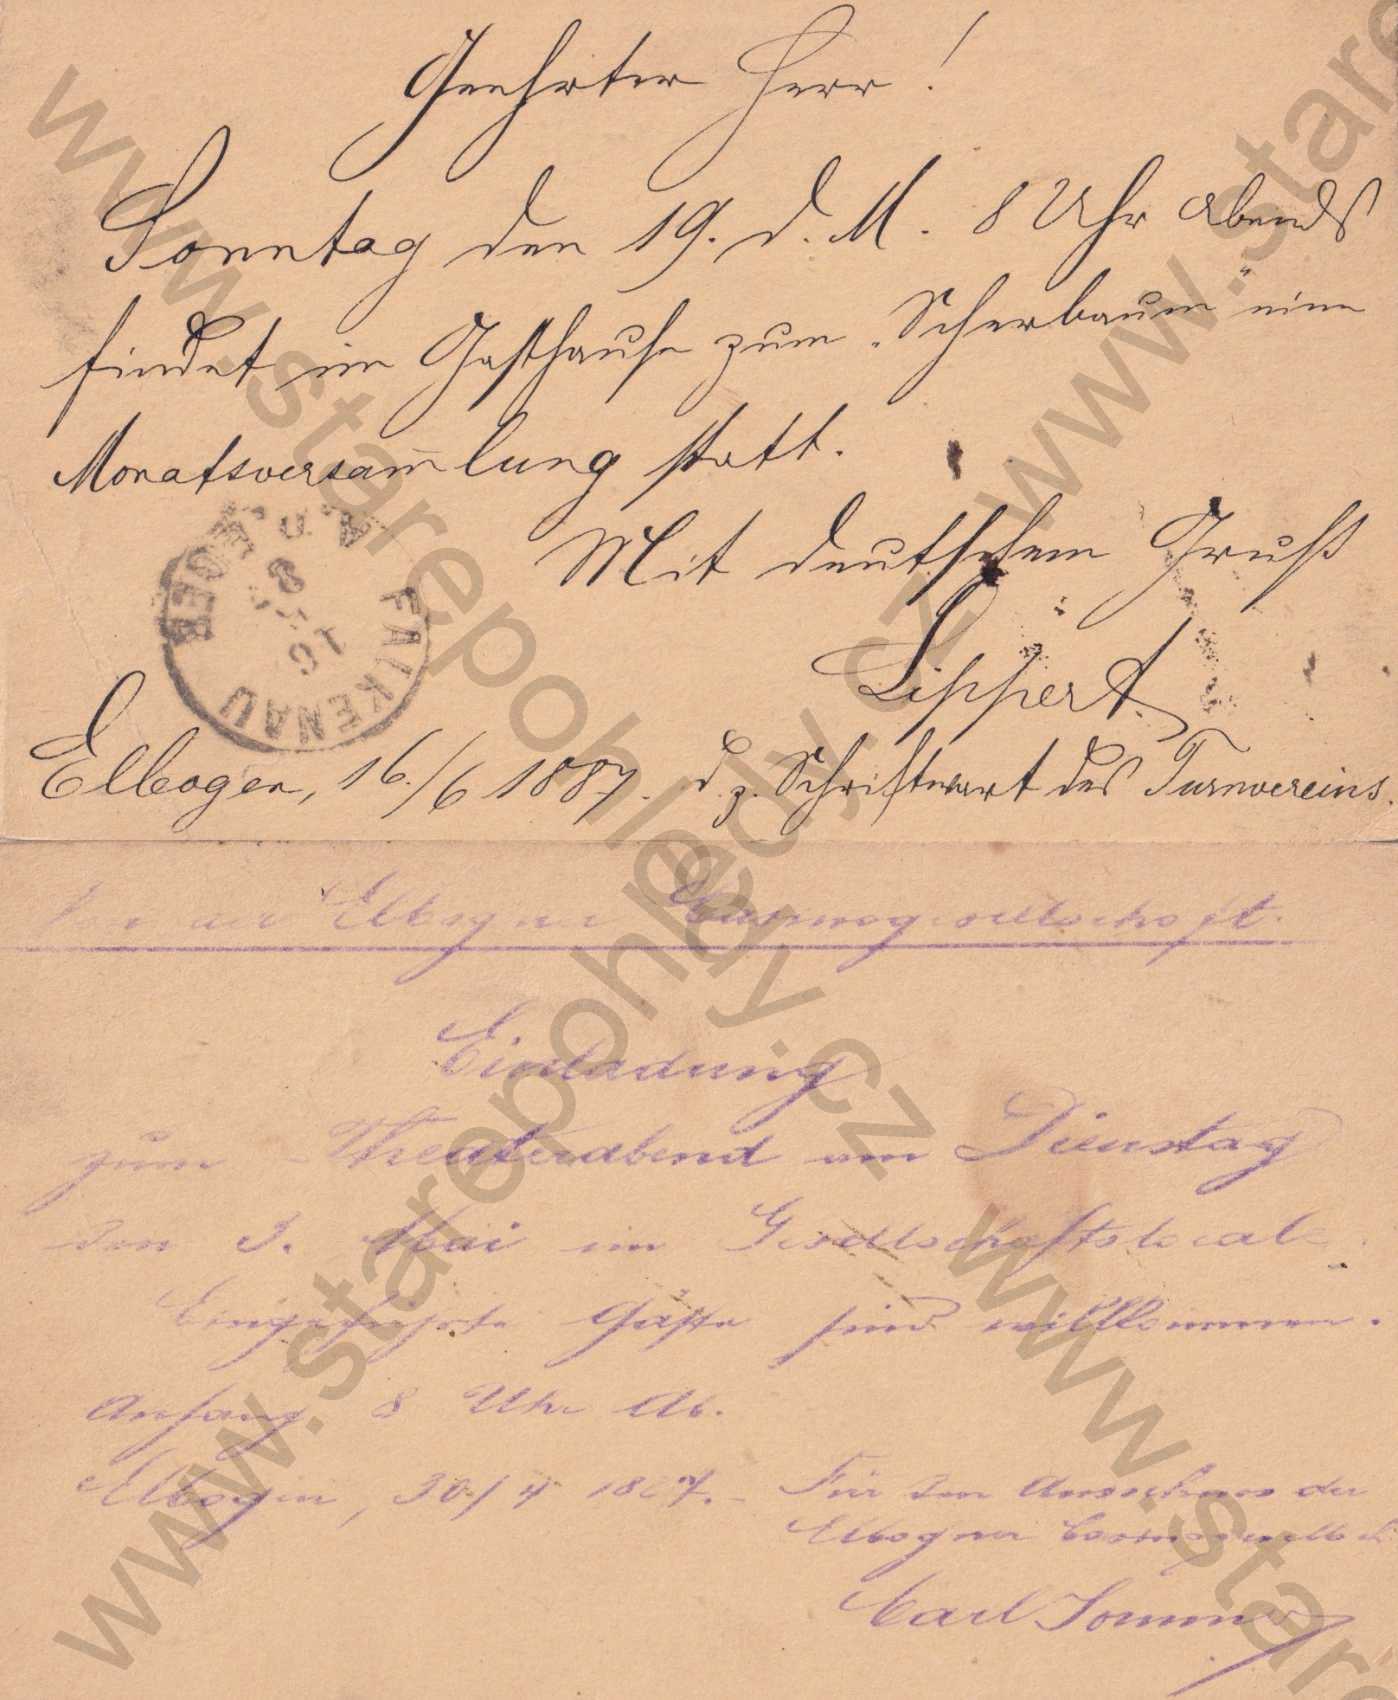 Geehrter Herr!
Sonntag den 19. d. M. 8 Uhr Abends
findet im Gasthause zum „Scherbaum“ eine
Monatsversam̅lung statt.
Mit deutschem Gruß
Lippert
Elbogen, 16./6 1887. d. z. Schriftwart des Turnvereins.
FALKENAU A. D. EGER
der Elbogner Casinogesellschaft.
Einladung
zum Theaterabend am Dienstag
den 3. Mai im Gesellschaftslocale.
Eingeführte Gäste sind willkommen.
Anfang 8 Uhr Ab.
Elbogen, 30/4 1887. Für den Ausschuss der
Elbogner Casinogesellsch.
Carl
www.starepohledy.cz
www.starepohledy.cz
www.stare
www.stare